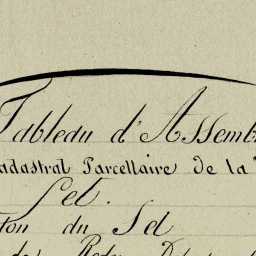 Tableau d'Assemb
adastral Parcellaire de la
Cet.
ton du Sel
de